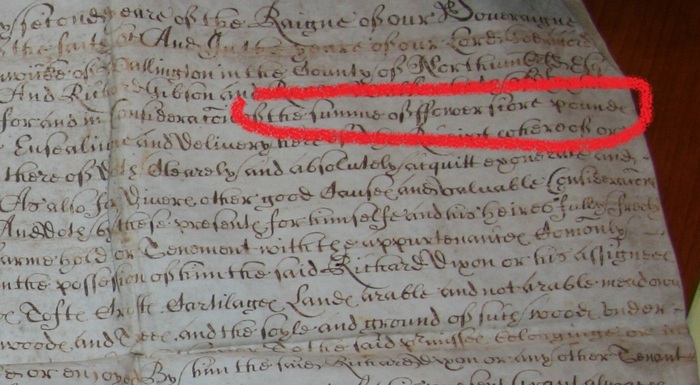 second yeare of the Raigne of our Soveraigne
the faith &c And In the yeare of our Lord
of Dullington in the County of Northumb
And Richard Gibson and
for and in Consideracon of the summe of ffower score pounds
Ensealing and delivery hereof the Receipt whereof
thereof doth Clearely and absolutely acquitt exonerate and
As also for Divers other good Causes and valuable Consideracons
And doth by these presents for himselfe and his heires fully freely
farme hold or Tenement with the appurtenances Comonly
in the possession of him the said Richard Dixon or his assignes
Tofts Crofts Gartilages Lands arable and not arable meadows
woods and Trees and the soyle and ground of such woods under
to the said premisses belonginge or in
or enjoyed By him the said Richard Dixon or any other Tenant